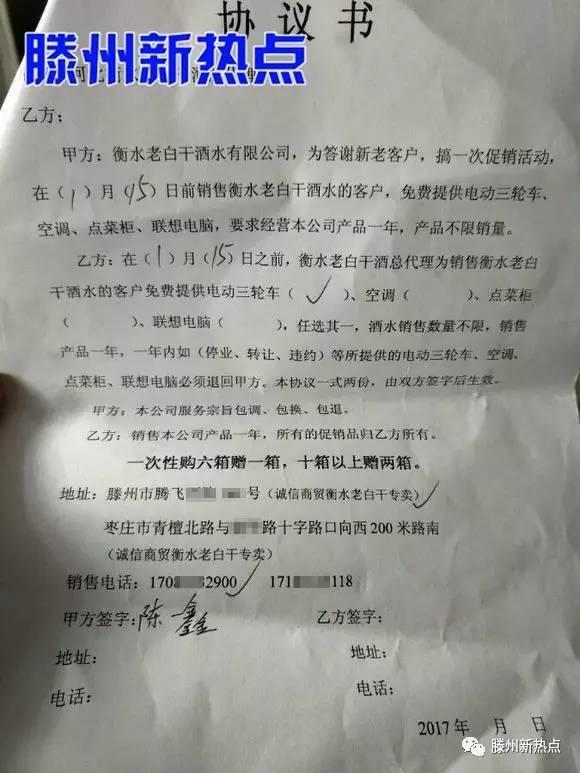 协议书
滕州新热点
乙方：
甲方：衡水老白干酒水有限公司，为答谢新老客户，搞一次促销活动，
在（1）月（15）日前销售衡水老白干酒水的客户，免费提供电动三轮车、
空调、点菜柜、联想电脑，要求经营本公司产品一年，产品不限销量。
乙方：在（1）月（15）日之前，衡水老白干酒总代理为销售衡水老白
干酒水的客户免费提供电动三轮车（ ✓ ）、空调（ ）、点菜柜
（ ）、联想电脑（ ），任选其一，酒水销售数量不限，销售
产品一年，一年内如（停业、转让、违约）等所提供的电动三轮车、空调、
点菜柜、联想电脑必须退回甲方。本协议一式两份，由双方签字后生效。
甲方：本公司服务宗旨包调、包换、包退。
乙方：销售本公司产品一年，所有的促销品归乙方所有。
一次性购六箱赠一箱，十箱以上赠两箱。
地址：滕州市腾飞 号（诚信商贸衡水老白干专卖）✓
枣庄市青檀北路与 路十字路口向西 200 米路南
（诚信商贸衡水老白干专卖）
销售电话：170 2900 ✓ 171 118
甲方签字：陈鑫 乙方签字：
地址： 地址：
电话： 电话：
2017 年 月 日
滕州新热点